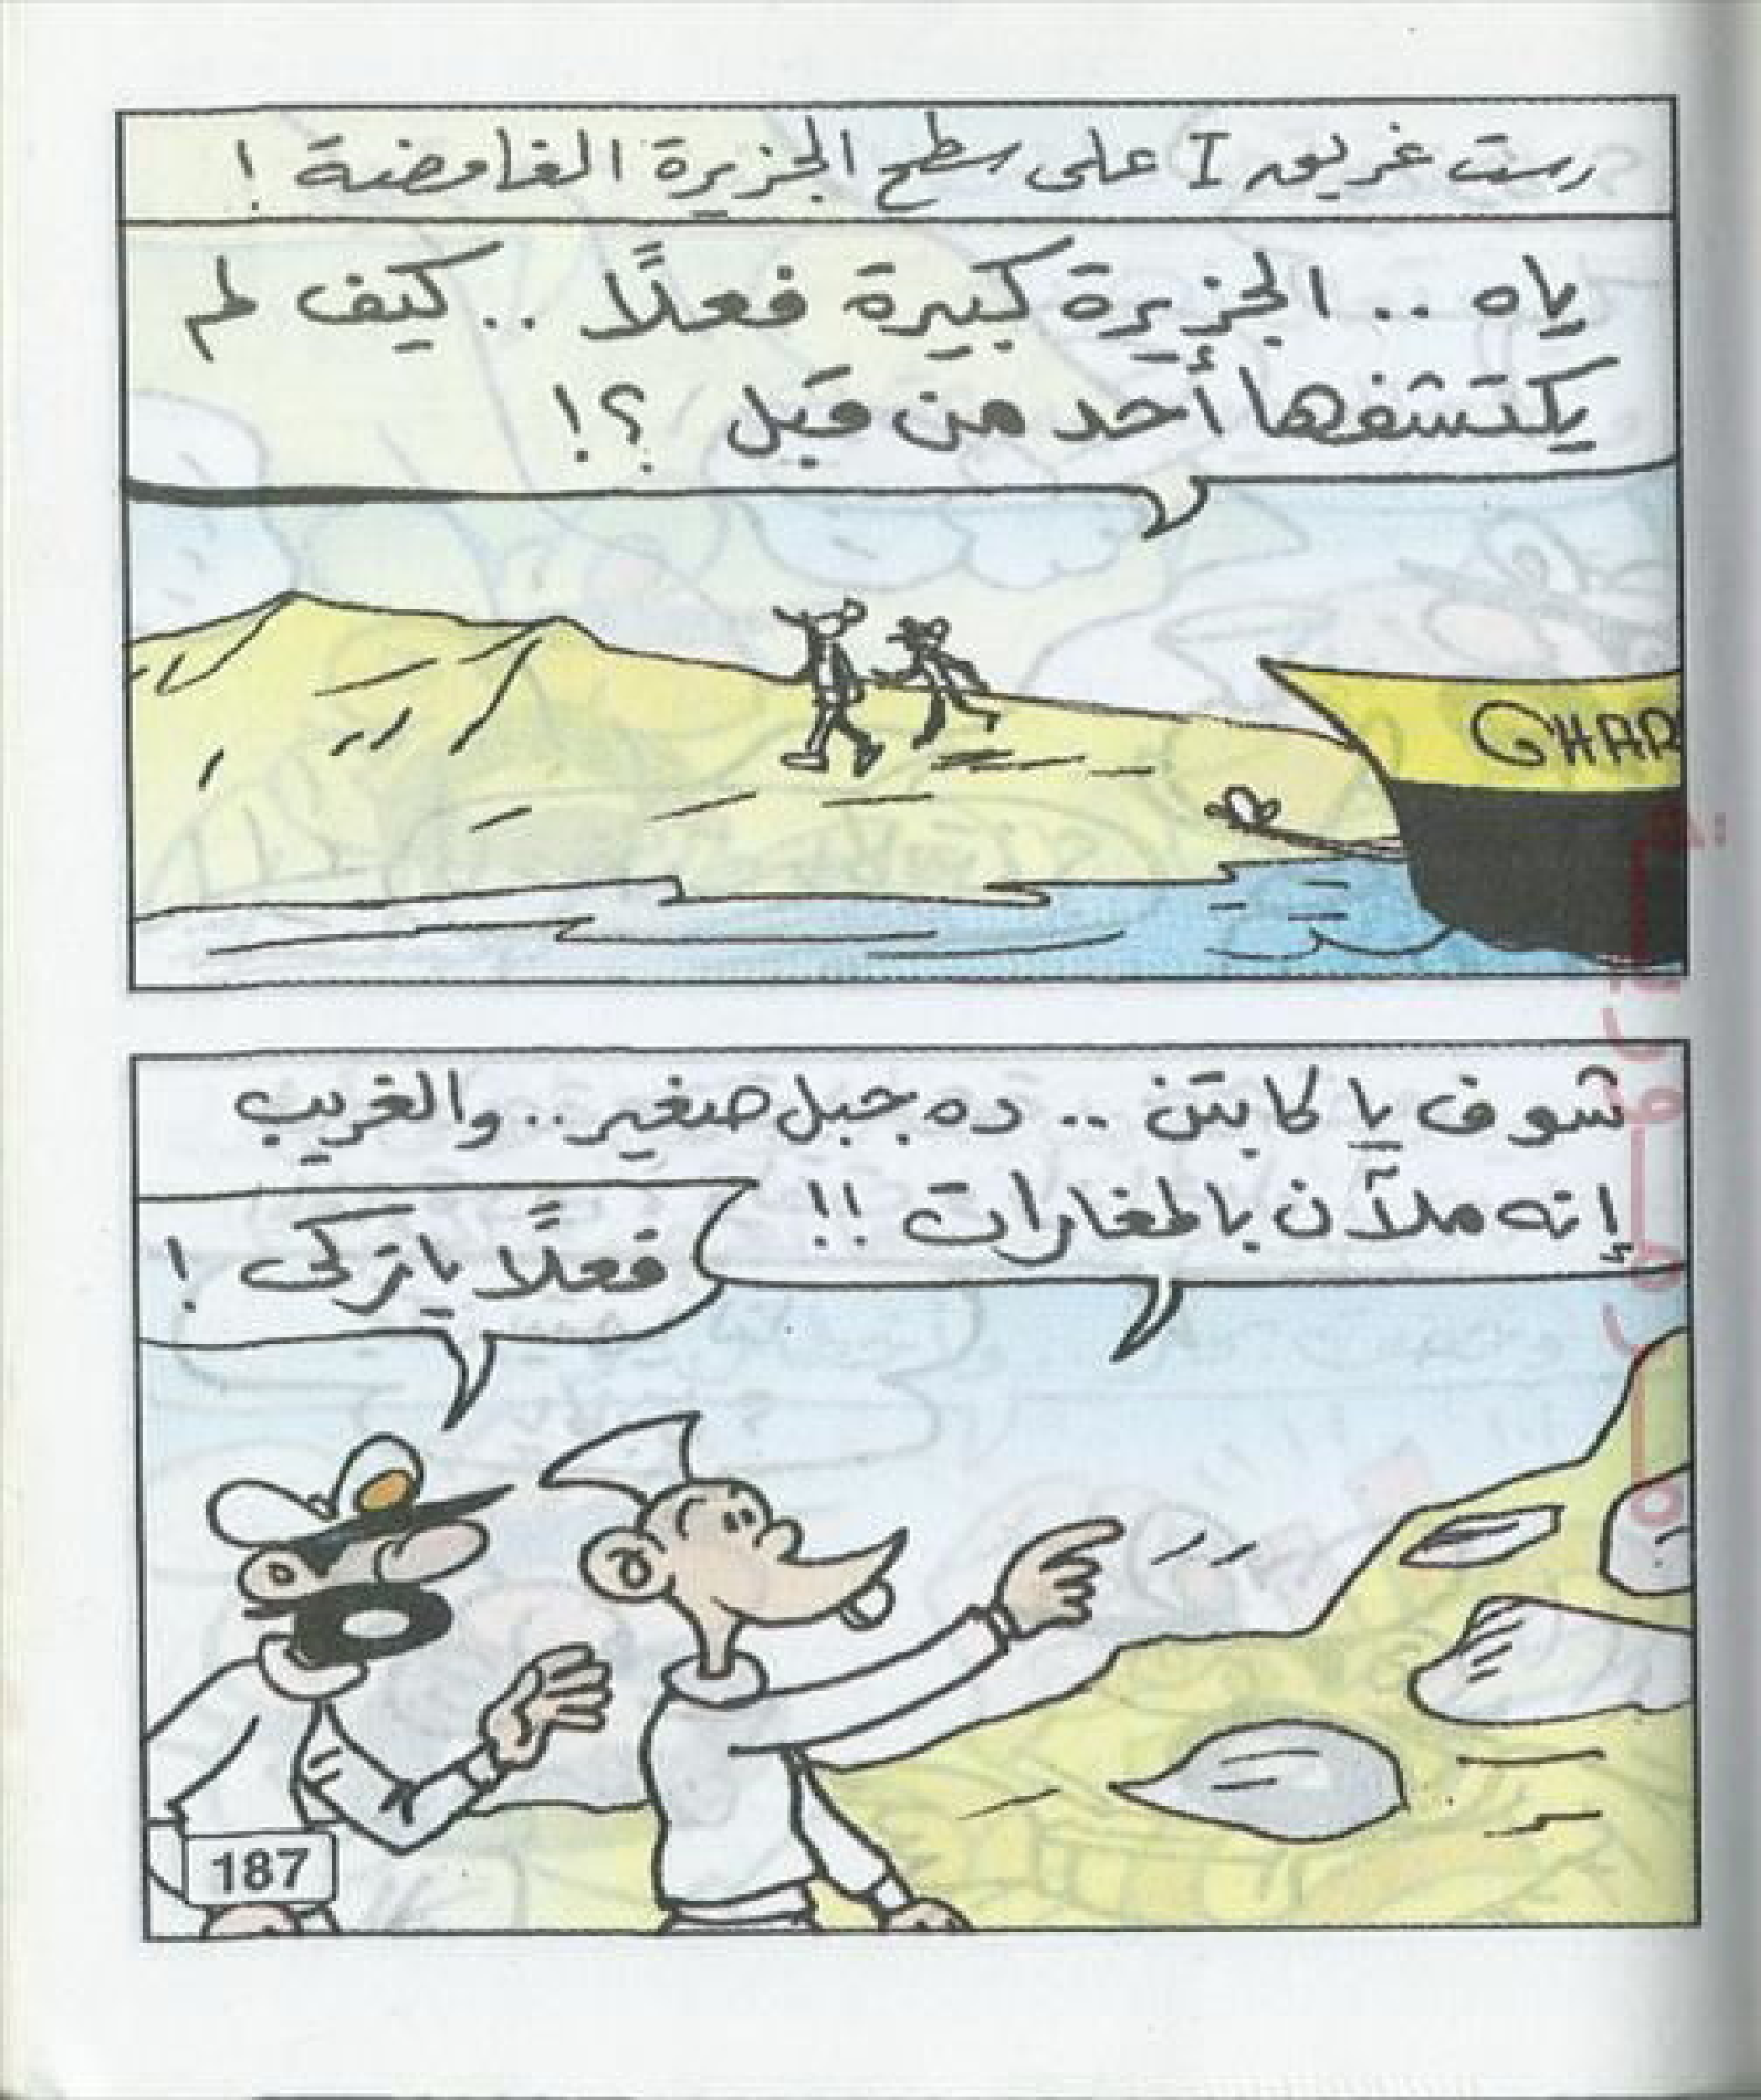 رست غريق I على سطح الجزيرة الغامضة !
ياه .. الجزيرة كبيرة فعلاً .. كيف لم
يكتشفها أحد من قبل ؟!
GHAR
شوف يا كابتن .. ده جبل صغير .. والغريب
إنه ملآن بالمغارات !!
فعلاً يا تركى !
187